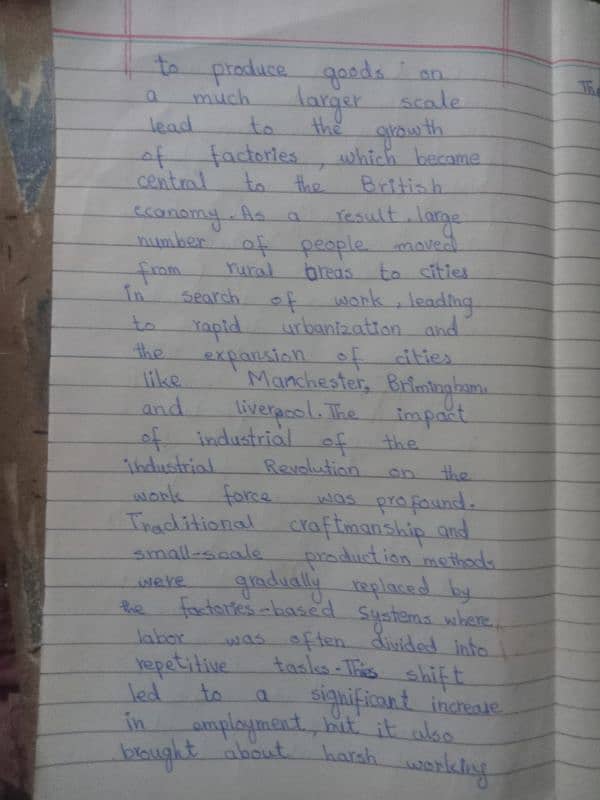 to produce goods on
a much larger scale
lead to the growth
of factories, which become
central to the British
economy. As a result, large
number of people moved
from rural breas to cities
in search of work, leading
to rapid urbanization and
the expansion of cities
like Manchester, Brimingham,
and liverpool. The impact
of industrial of the
industrial Revolution on the
work force was profound.
Traditional craftmanship and
small-scale production methods
were gradually replaced by
the factories-based systems where,
labor was often divided into
repetitive tasks. This shift
led to a significant increase
in employment, but it also
brought about harsh working
The